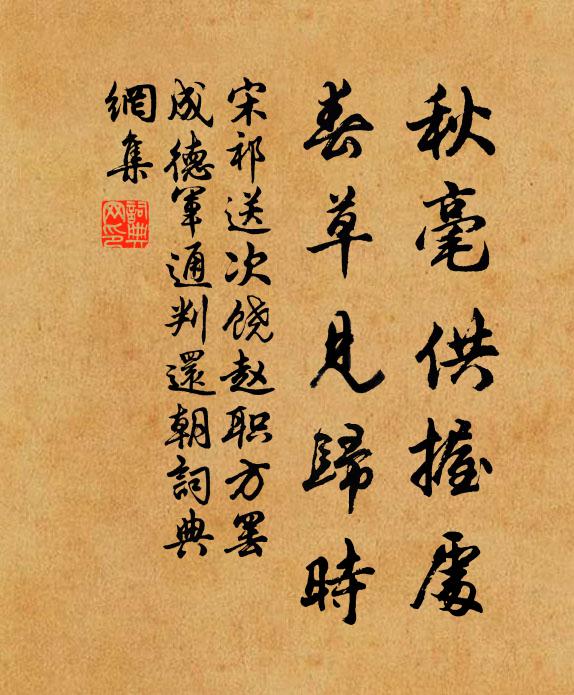 秋毫供握處
春草見歸時
宋祁送次饶赵职方罢
成德軍通判還朝詞典
網集
詞典网印